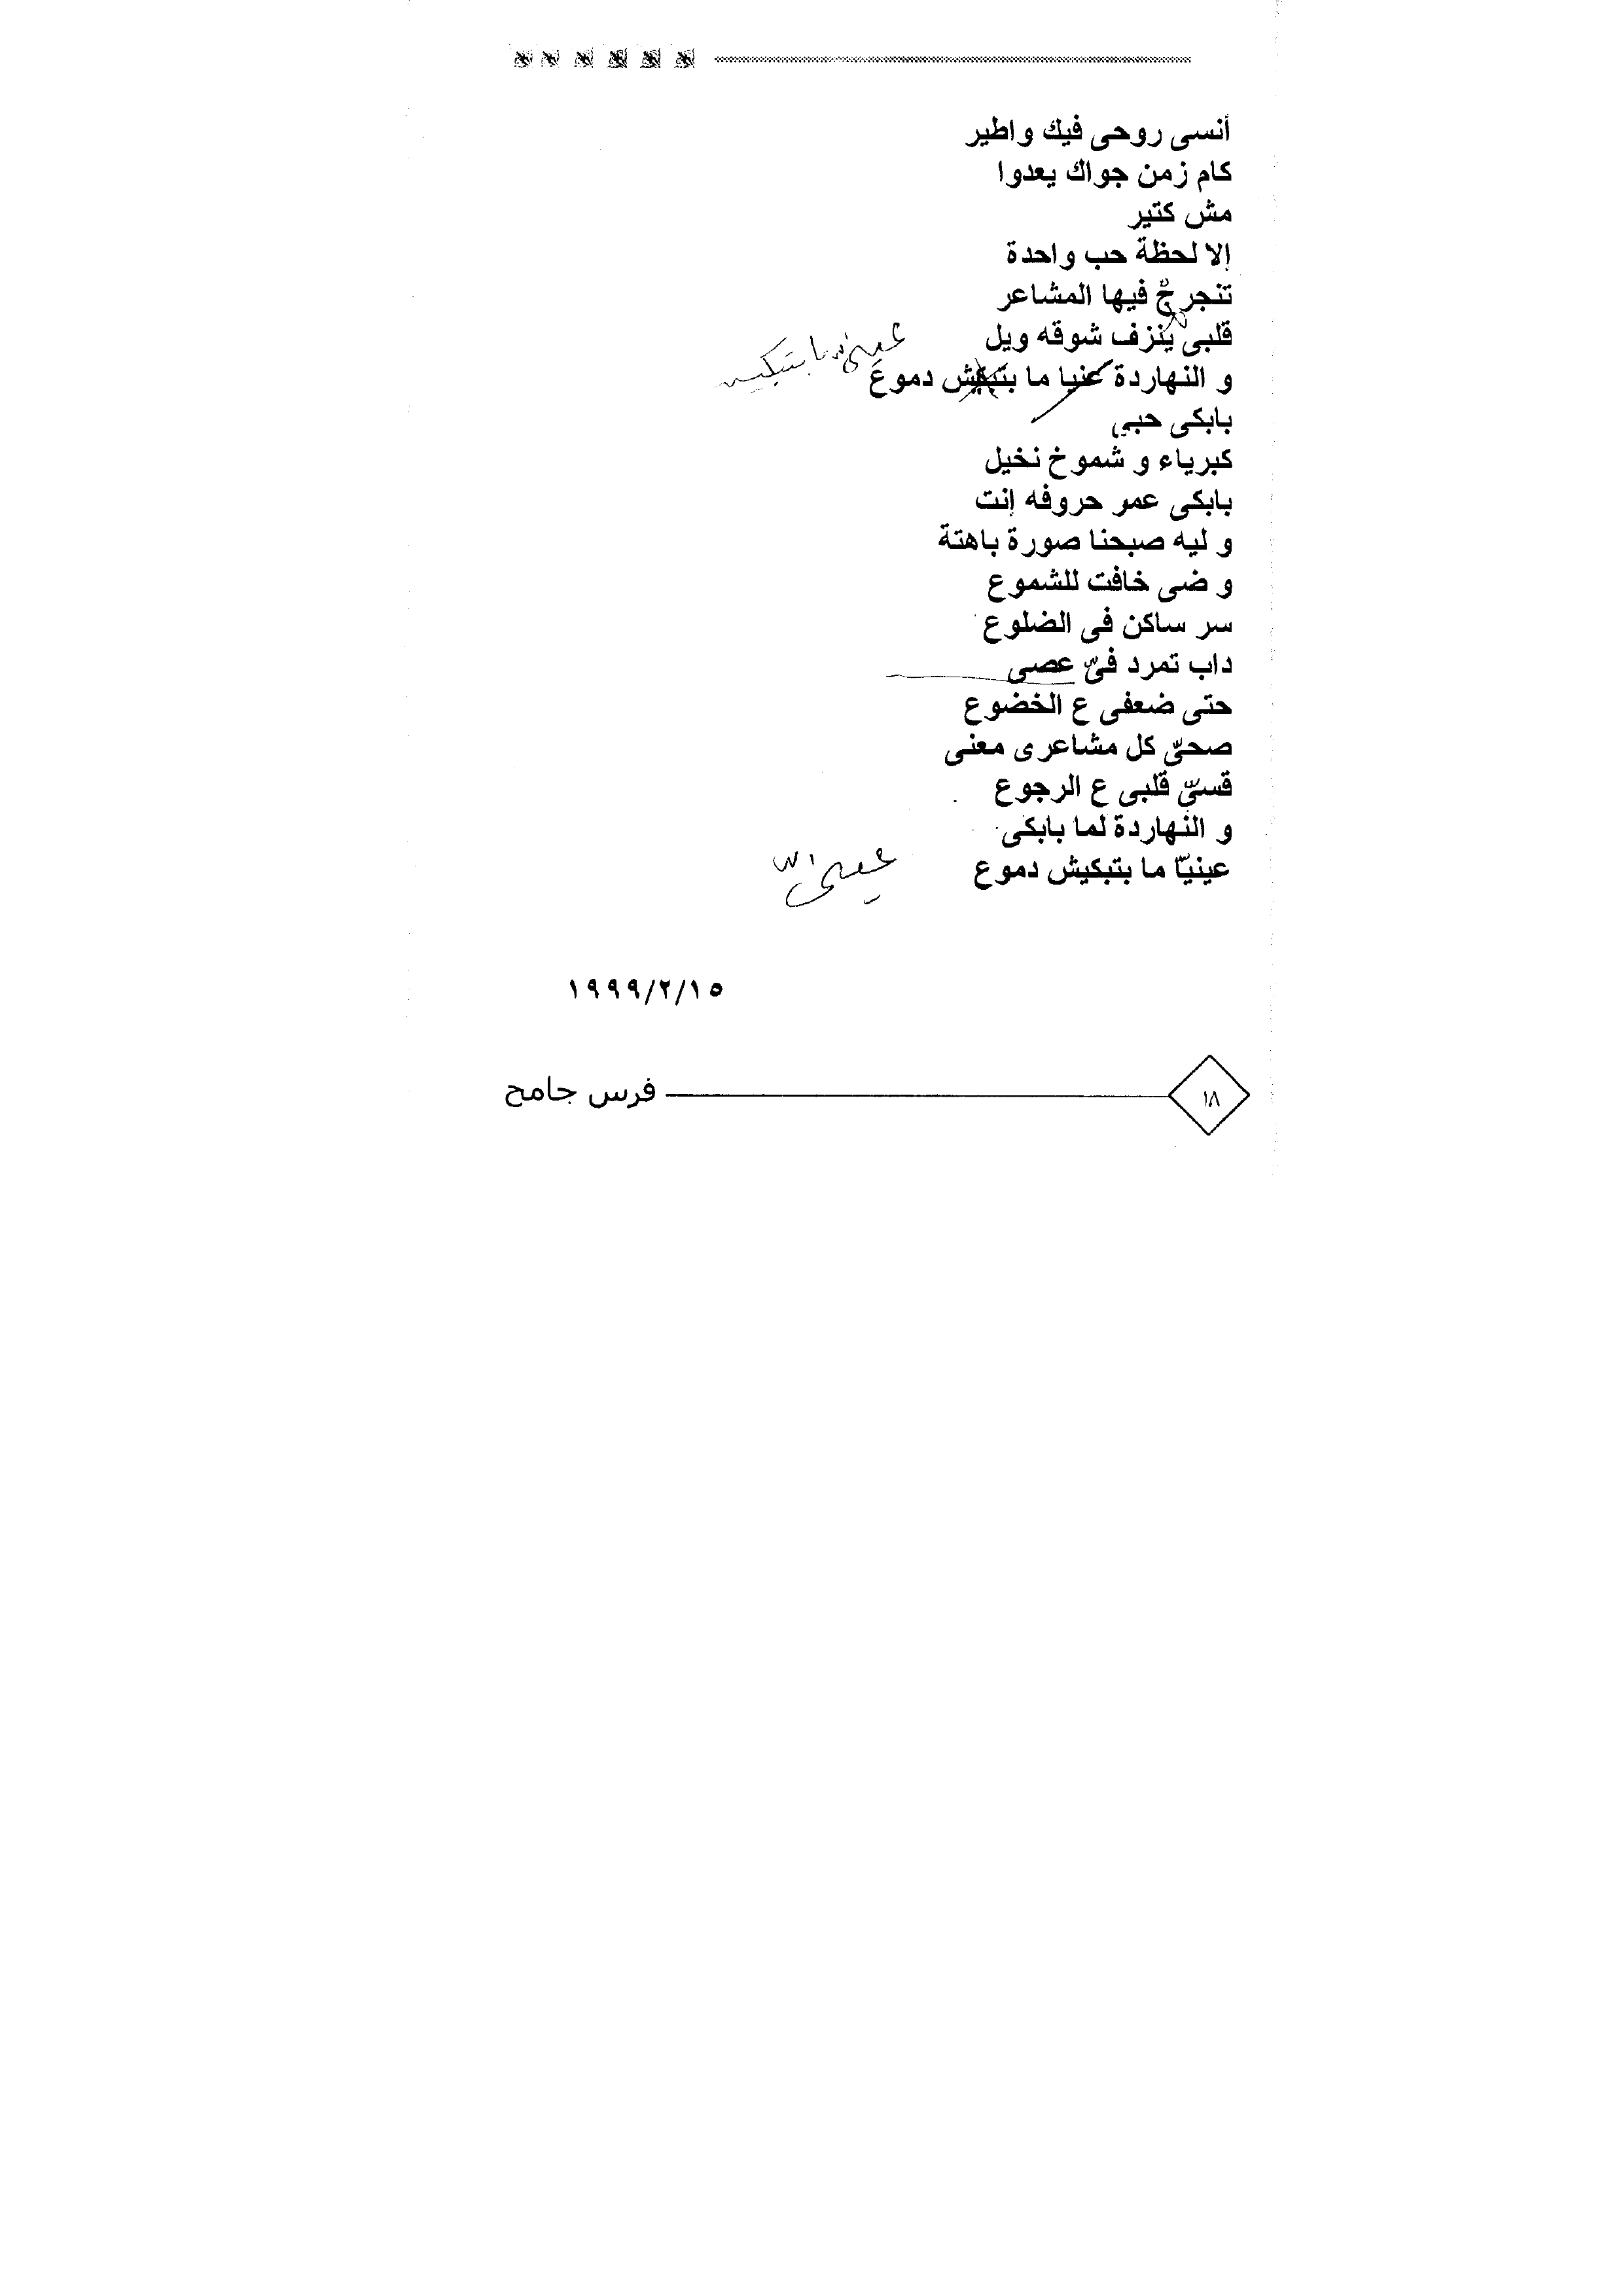 أنسى روحى فيك و اطير
كام زمن جواك يعدوا
مش كتير
إلا لحظة حب واحدة
تنجرح فيها المشاعر
قلبى ينزف شوقه ويل
و النهاردة عنيا ما بتبكيش دموع
بابكى حبى
كبرياء و شموخ نخيل
بابكى عمر حروفه إنت
و ليه صبحنا صورة باهتة
و ضى خافت للشموع
سر ساكن فى الضلوع
داب تمرد فىّ عصى
حتى ضعفى ع الخضوع
صحىّ كل مشاعرى معنى
قسىّ قلبى ع الرجوع
و النهاردة لما بابكى
عينيّا ما بتبكيش دموع
١٩٩٩/٢/١٥
١٨
فرس جامح